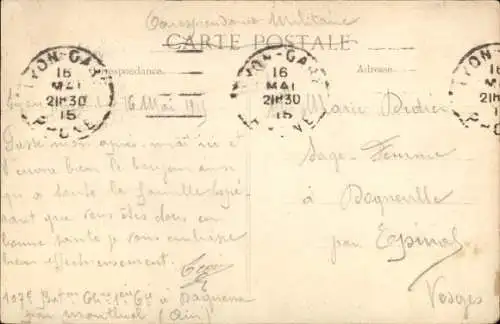 Correspondance Militaire
CARTE POSTALE
Correspondance. Adresse.
LYON-GARE
16
MAI
21H30
15
RHONE
LYON-GARE
16
MAI
21H30
15
RHONE
LYON-GARE
16
MAI
21H30
15
RHONE
16 Mai
Passé mon après-midi ici et
t'envoie bien le bonjour ainsi
qu'à toute la famille espé
rant que vous êtes tous en
bonne santé je vous embrasse
bien affectueusement.
107e Bat on Ch 1e Cie à Dagneux
par Montluel (Ain)
Marie Didier
Sage-Femme
à Dogneville
par Epinal
Vosges